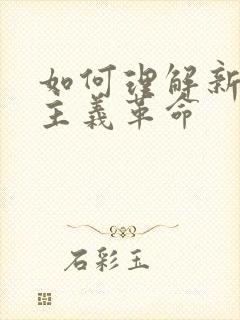 如何理解新
主義革命
石彩玉